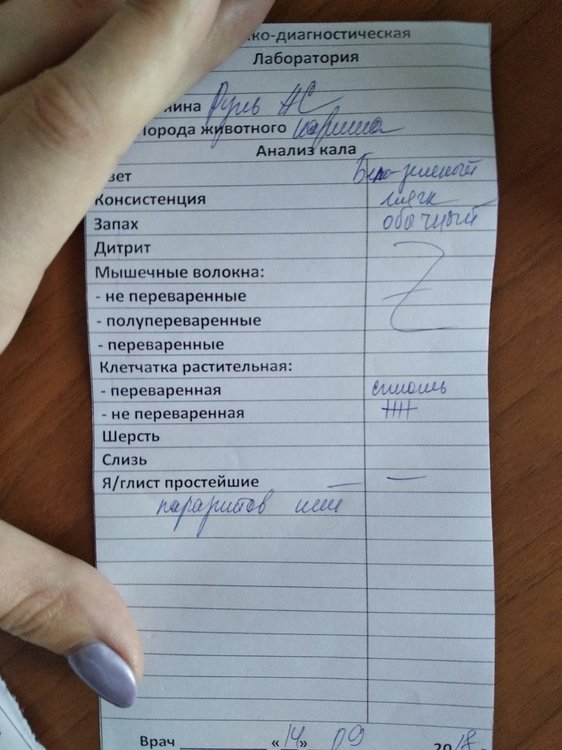 ко-диагностическая
Лаборатория
ина Руль АС
Порода животного
Анализ кала
вет Бело-зеленый
Консистенция мягк
Запах обычный
Дитрит
Мышечные волокна:
- не переваренные
- полупереваренные
- переваренные
Клетчатка растительная:
- переваренная сплошь
- не переваренная
Шерсть
Слизь
Я/глист простейшие — —
паразитов нет
Врач «14» 09 2018